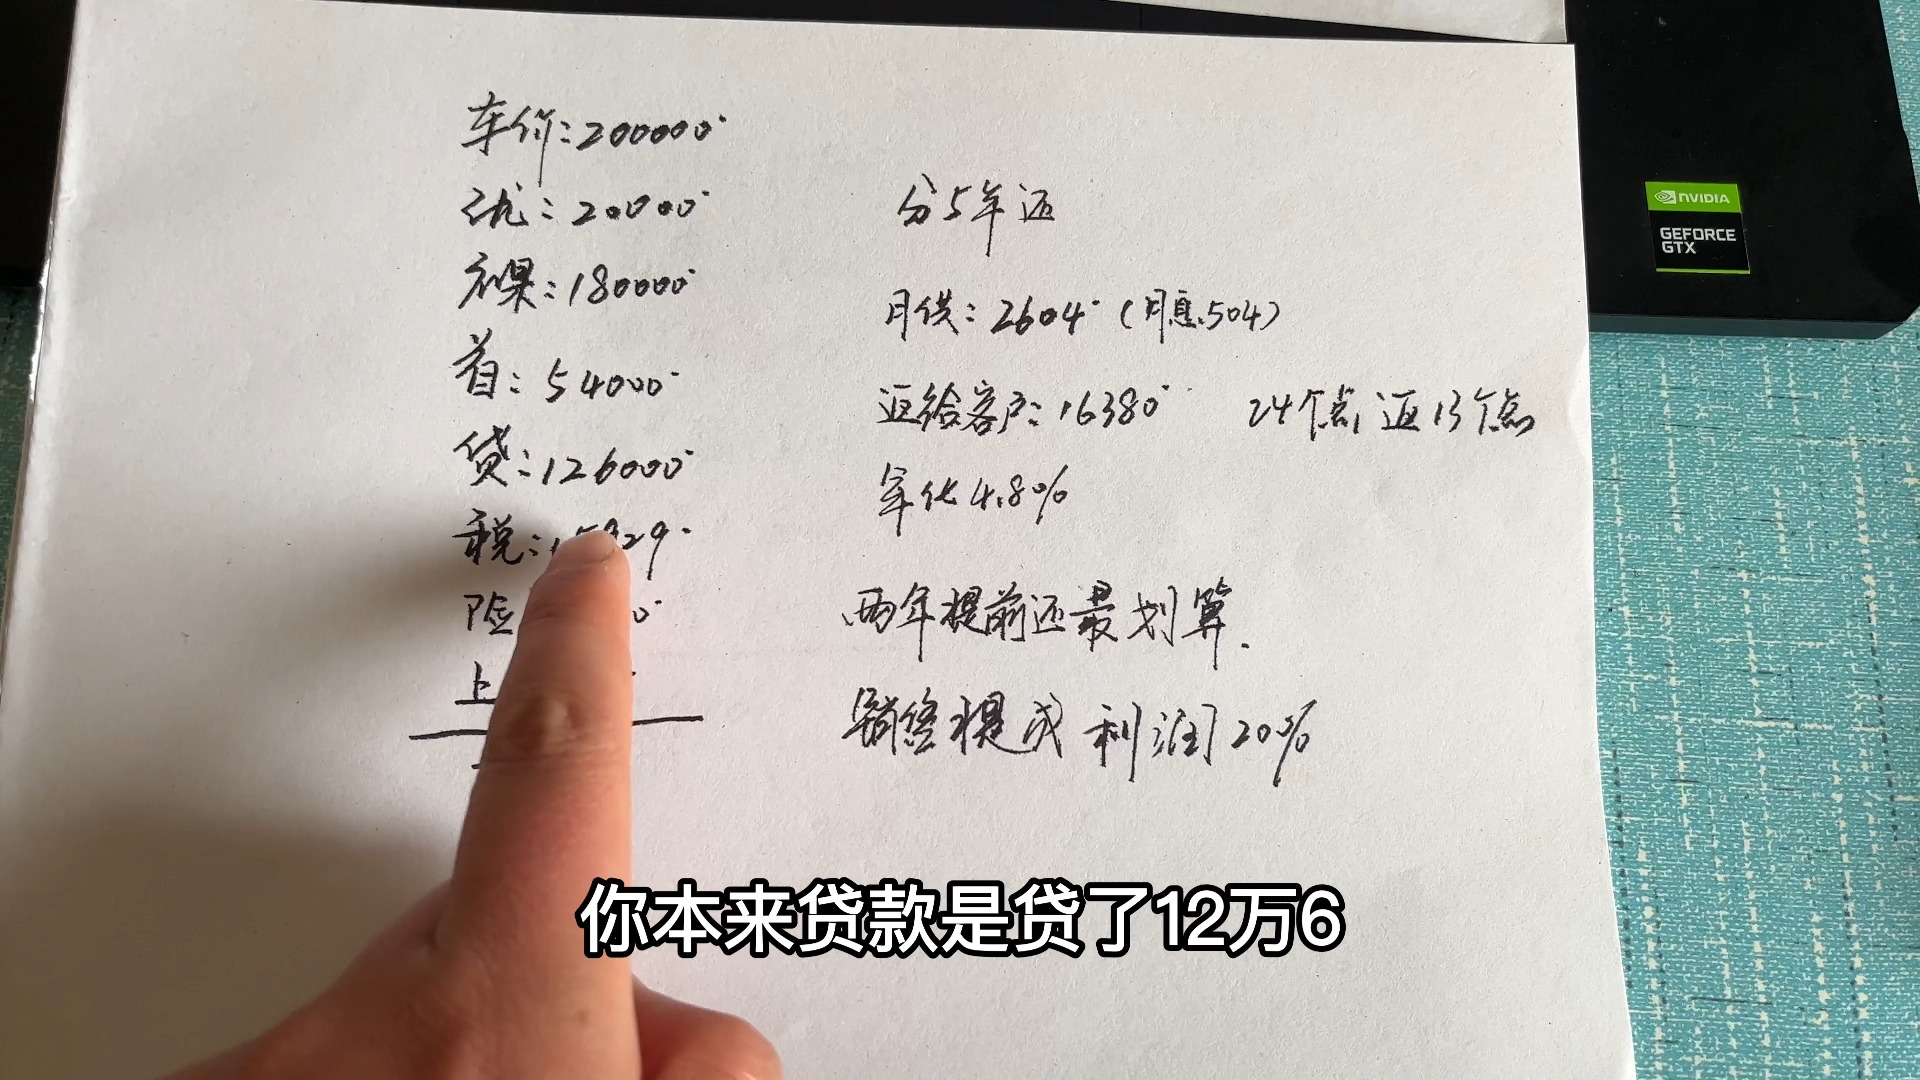 车价：200000
优：20000
裸：180000
首：54000
贷：126000
税：15929
险
上
分5年还
月供：2604（月息：504）
返给客户：16380 24个点返13个点
年化4.8%
两年提前还最划算.
销售提成利润20%
NVIDIA
GEFORCE
GTX
你本来贷款是贷了12万6